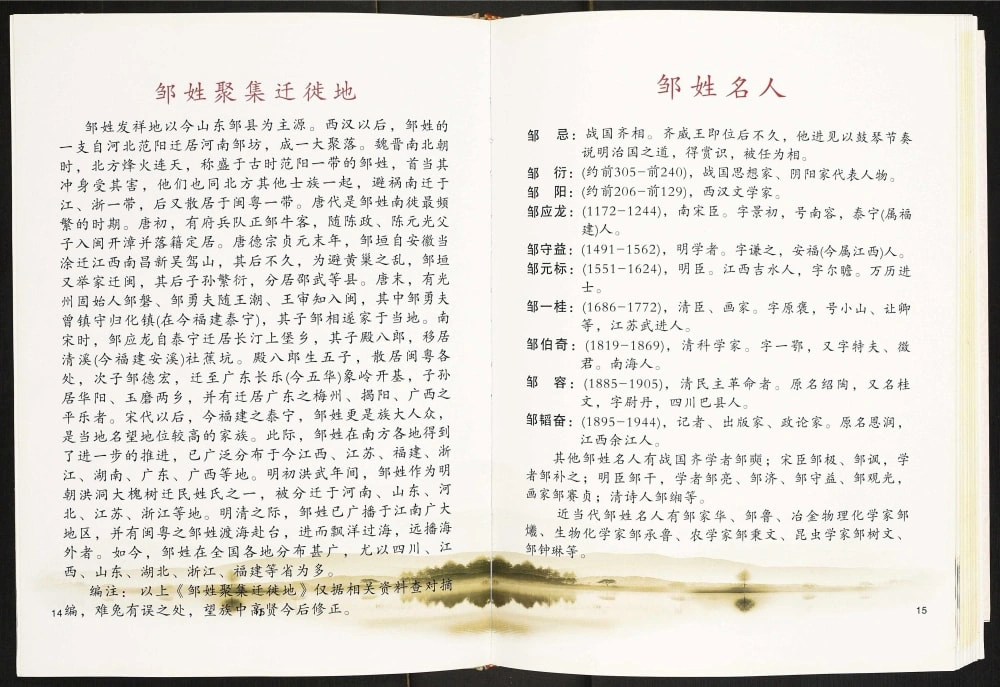 邹姓聚集迁徙地
邹姓发祥地以今山东邹县为主源。西汉以后，邹姓的
一支自河北范阳迁居河南邹坊，成一大聚落。魏晋南北朝
时，北方烽火连天，称盛于古时范阳一带的邹姓，首当其
冲身受其害，他们也同北方其他士族一起，避祸南迁于
江、浙一带，后又散居于闽粤一带。唐代是邹姓南徙最频
繁的时期。唐初，有府兵队正邹牛客，随陈政、陈元光父
子入闽开漳并落籍定居。唐德宗贞元末年，邹垣自安徽当
涂迁江西南昌新吴驾山，其后不久，为避黄巢之乱，邹垣
又举家迁闽，其后子孙繁衍，分居邵武等县。唐末，有光
州固始人邹磐、邹勇夫随王潮、王审知入闽，其中邹勇夫
曾镇守归化镇(在今福建泰宁)，其子邹相遂家于当地。南
宋时，邹应龙自泰宁迁居长汀上堡乡，其子殿八郎，移居
清溪(今福建安溪)社蕉坑。殿八郎生五子，散居闽粤各
处，次子邹德宏，迁至广东长乐(今五华)象岭开基，子孙
居华阳、玉磨两乡，并有迁居广东之梅州、揭阳、广西之
平乐者。宋代以后，今福建之泰宁，邹姓更是族大人众，
是当地名望地位较高的家族。此际，邹姓在南方各地得到
了进一步的推进，已广泛分布于今江西、江苏、福建、浙
江、湖南、广东、广西等地。明初洪武年间，邹姓作为明
朝洪洞大槐树迁民姓氏之一，被分迁于河南、山东、河
北、江苏、浙江等地。明清之际，邹姓已广播于江南广大
地区，并有闽粤之邹姓渡海赴台，进而飘洋过海，远播海
外者。如今，邹姓在全国各地分布甚广，尤以四川、江
西、山东、湖北、浙江、福建等省为多。
编注：以上《邹姓聚集迁徙地》仅据相关资料查对摘
编，难免有误之处，望族中高贤今后修正。
14
邹姓名人
邹　忌：战国齐相。齐威王即位后不久，他进见以鼓琴节奏
说明治国之道，得赏识，被任为相。
邹　衍：(约前305-前240)，战国思想家、阴阳家代表人物。
邹　阳：(约前206-前129)，西汉文学家。
邹应龙：(1172-1244)，南宋臣。字景初，号南容，泰宁(属福
建)人。
邹守益：(1491-1562)，明学者。字谦之，安福(今属江西)人。
邹元标：(1551-1624)，明臣。江西吉水人，字尔瞻。万历进
士。
邹一桂：(1686-1772)，清臣、画家。字原褒，号小山、让卿
等，江苏武进人。
邹伯奇：(1819-1869)，清科学家。字一鄂，又字特夫、徵
君。南海人。
邹　容：(1885-1905)，清民主革命者。原名绍陶，又名桂
文，字尉丹，四川巴县人。
邹韬奋：(1895-1944)，记者、出版家、政论家。原名恩润，
江西余江人。
其他邹姓名人有战国齐学者邹奭；宋臣邹极、邹讽，学
者邹补之；明臣邹干，学者邹亮、邹济、邹守益、邹观光，
画家邹赛贞；清诗人邹缃等。
近当代邹姓名人有邹家华、邹鲁、冶金物理化学家邹
爔、生物化学家邹承鲁、农学家邹秉文、昆虫学家邹树文、
邹钟琳等。
15